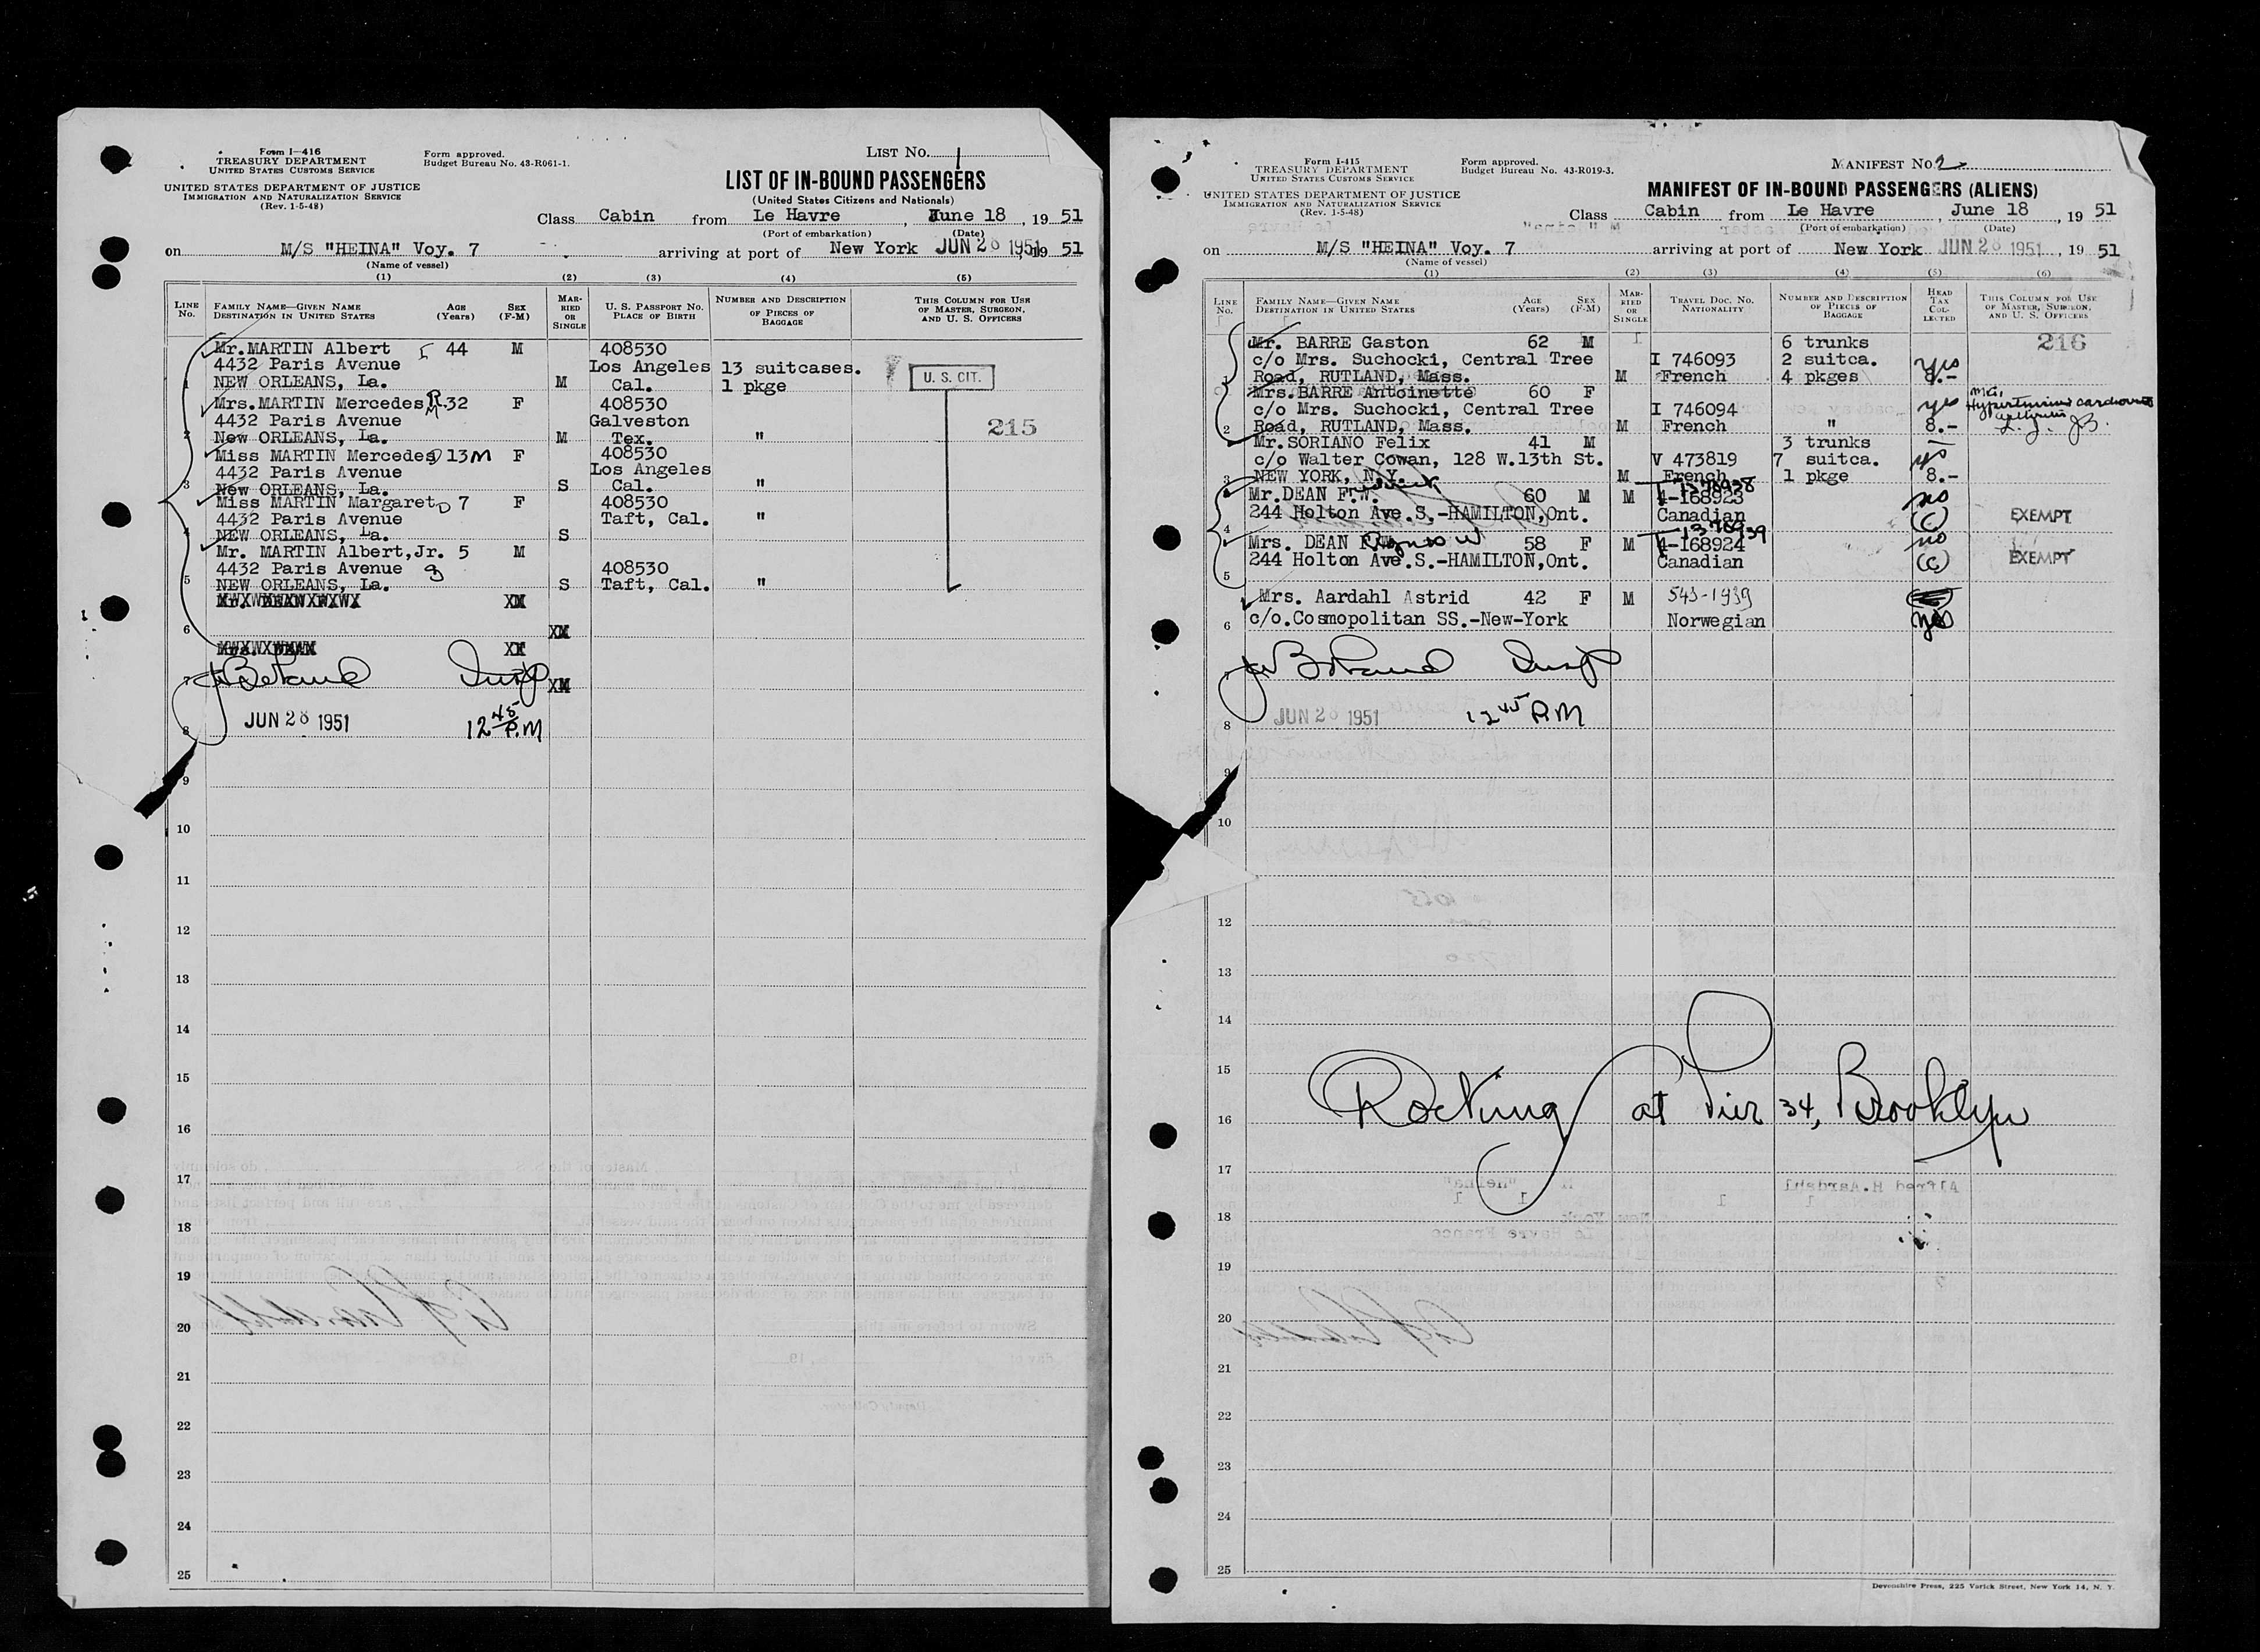 Form I-416
TREASURY DEPARTMENT
UNITED STATES CUSTOMS SERVICE
UNITED STATES DEPARTMENT OF JUSTICE
IMMIGRATION AND NATURALIZATION SERVICE
(Rev. 1-5-48)
Form approved.
Budget Bureau No. 43-R061-1.
LIST No. 1
LIST OF IN-BOUND PASSENGERS
(United States Citizens and Nationals)
Class Cabin from Le Havre, June 18, 19 51
(Port of embarkation) (Date)
on M/S "HEINA" Voy. 7 arriving at port of New York JUN 28 1951, 19 51
(Name of vessel)
(1) (2) (3) (4) (5)
LINE No. FAMILY NAME—GIVEN NAME DESTINATION IN UNITED STATES AGE (Years) SEX (F-M) MARRIED OR SINGLE U. S. PASSPORT No. PLACE OF BIRTH NUMBER AND DESCRIPTION OF PIECES OF BAGGAGE THIS COLUMN FOR USE OF MASTER, SURGEON, AND U. S. OFFICERS
Mr. MARTIN Albert 44 M 408530
4432 Paris Avenue Los Angeles 13 suitcases.
1 NEW ORLEANS, La. M Cal. 1 pkge
U. S. CIT.
Mrs. MARTIN Mercedes R 32 F 408530
4432 Paris Avenue Galveston 215
2 New ORLEANS, La. M Tex. "
Miss MARTIN Mercedes 13 M F 408530
4432 Paris Avenue Los Angeles
3 New ORLEANS, La. S Cal. "
Miss MARTIN Margaret D 7 F 408530
4432 Paris Avenue Taft, Cal. "
4 NEW ORLEANS, La. S
Mr. MARTIN Albert, Jr. 5 M
4432 Paris Avenue 408530
5 NEW ORLEANS, La. S Taft, Cal. "
6
7
JUN 28 1951 12 45 P.M
8
9
10
11
12
13
14
15
16
17
18
19
20
21
22
23
24
25
Form I-415
TREASURY DEPARTMENT
UNITED STATES CUSTOMS SERVICE
UNITED STATES DEPARTMENT OF JUSTICE
IMMIGRATION AND NATURALIZATION SERVICE
(Rev. 1-5-48)
Form approved.
Budget Bureau No. 43-R019-3.
MANIFEST No. 2
MANIFEST OF IN-BOUND PASSENGERS (ALIENS)
Class Cabin from Le Havre, June 18, 19 51
(Port of embarkation) (Date)
on M/S "HEINA" Voy. 7 arriving at port of New York JUN 28 1951, 19 51
(Name of vessel)
(1) (2) (3) (4) (5) (6)
LINE No. FAMILY NAME—GIVEN NAME DESTINATION IN UNITED STATES AGE (Years) SEX (F-M) MARRIED OR SINGLE TRAVEL DOC. No. NATIONALITY NUMBER AND DESCRIPTION OF PIECES OF BAGGAGE HEAD TAX COLLECTED THIS COLUMN FOR USE OF MASTER, SURGEON, AND U. S. OFFICERS
Mr. BARRE Gaston 62 M 6 trunks 216
c/o Mrs. Suchocki, Central Tree I 746093 2 suitca. yes
1 Road, RUTLAND, Mass. M French 4 pkges 8.-
Mrs. BARRE Antoinette 60 F
c/o Mrs. Suchocki, Central Tree I 746094 yes
2 Road, RUTLAND, Mass. M French " 8.-
Mr. SORIANO Felix 41 M 3 trunks
c/o Walter Cowan, 128 W.13th St. V 473819 7 suitca. yes
3 NEW YORK, N.Y. M French 1 pkge 8.-
Mr. DEAN F.W. 60 M M 4-168923 no
4 244 Holton Ave.S.-HAMILTON,Ont. Canadian (C) EXEMPT
Mrs. DEAN 58 F M 4-168924 no
5 244 Holton Ave.S.-HAMILTON,Ont. Canadian (C) EXEMPT
Mrs. Aardahl Astrid 42 F M 543-1939
6 c/o.Cosmopolitan SS.-New-York Norwegian yes
7
JUN 28 1951 12 45 P.M
8
9
10
12
13
14
15
Docking at Pier 34, Brooklyn
16
17
18
19
20
21
22
23
24
25
Devonshire Press, 225 Varick Street, New York 14, N. Y.